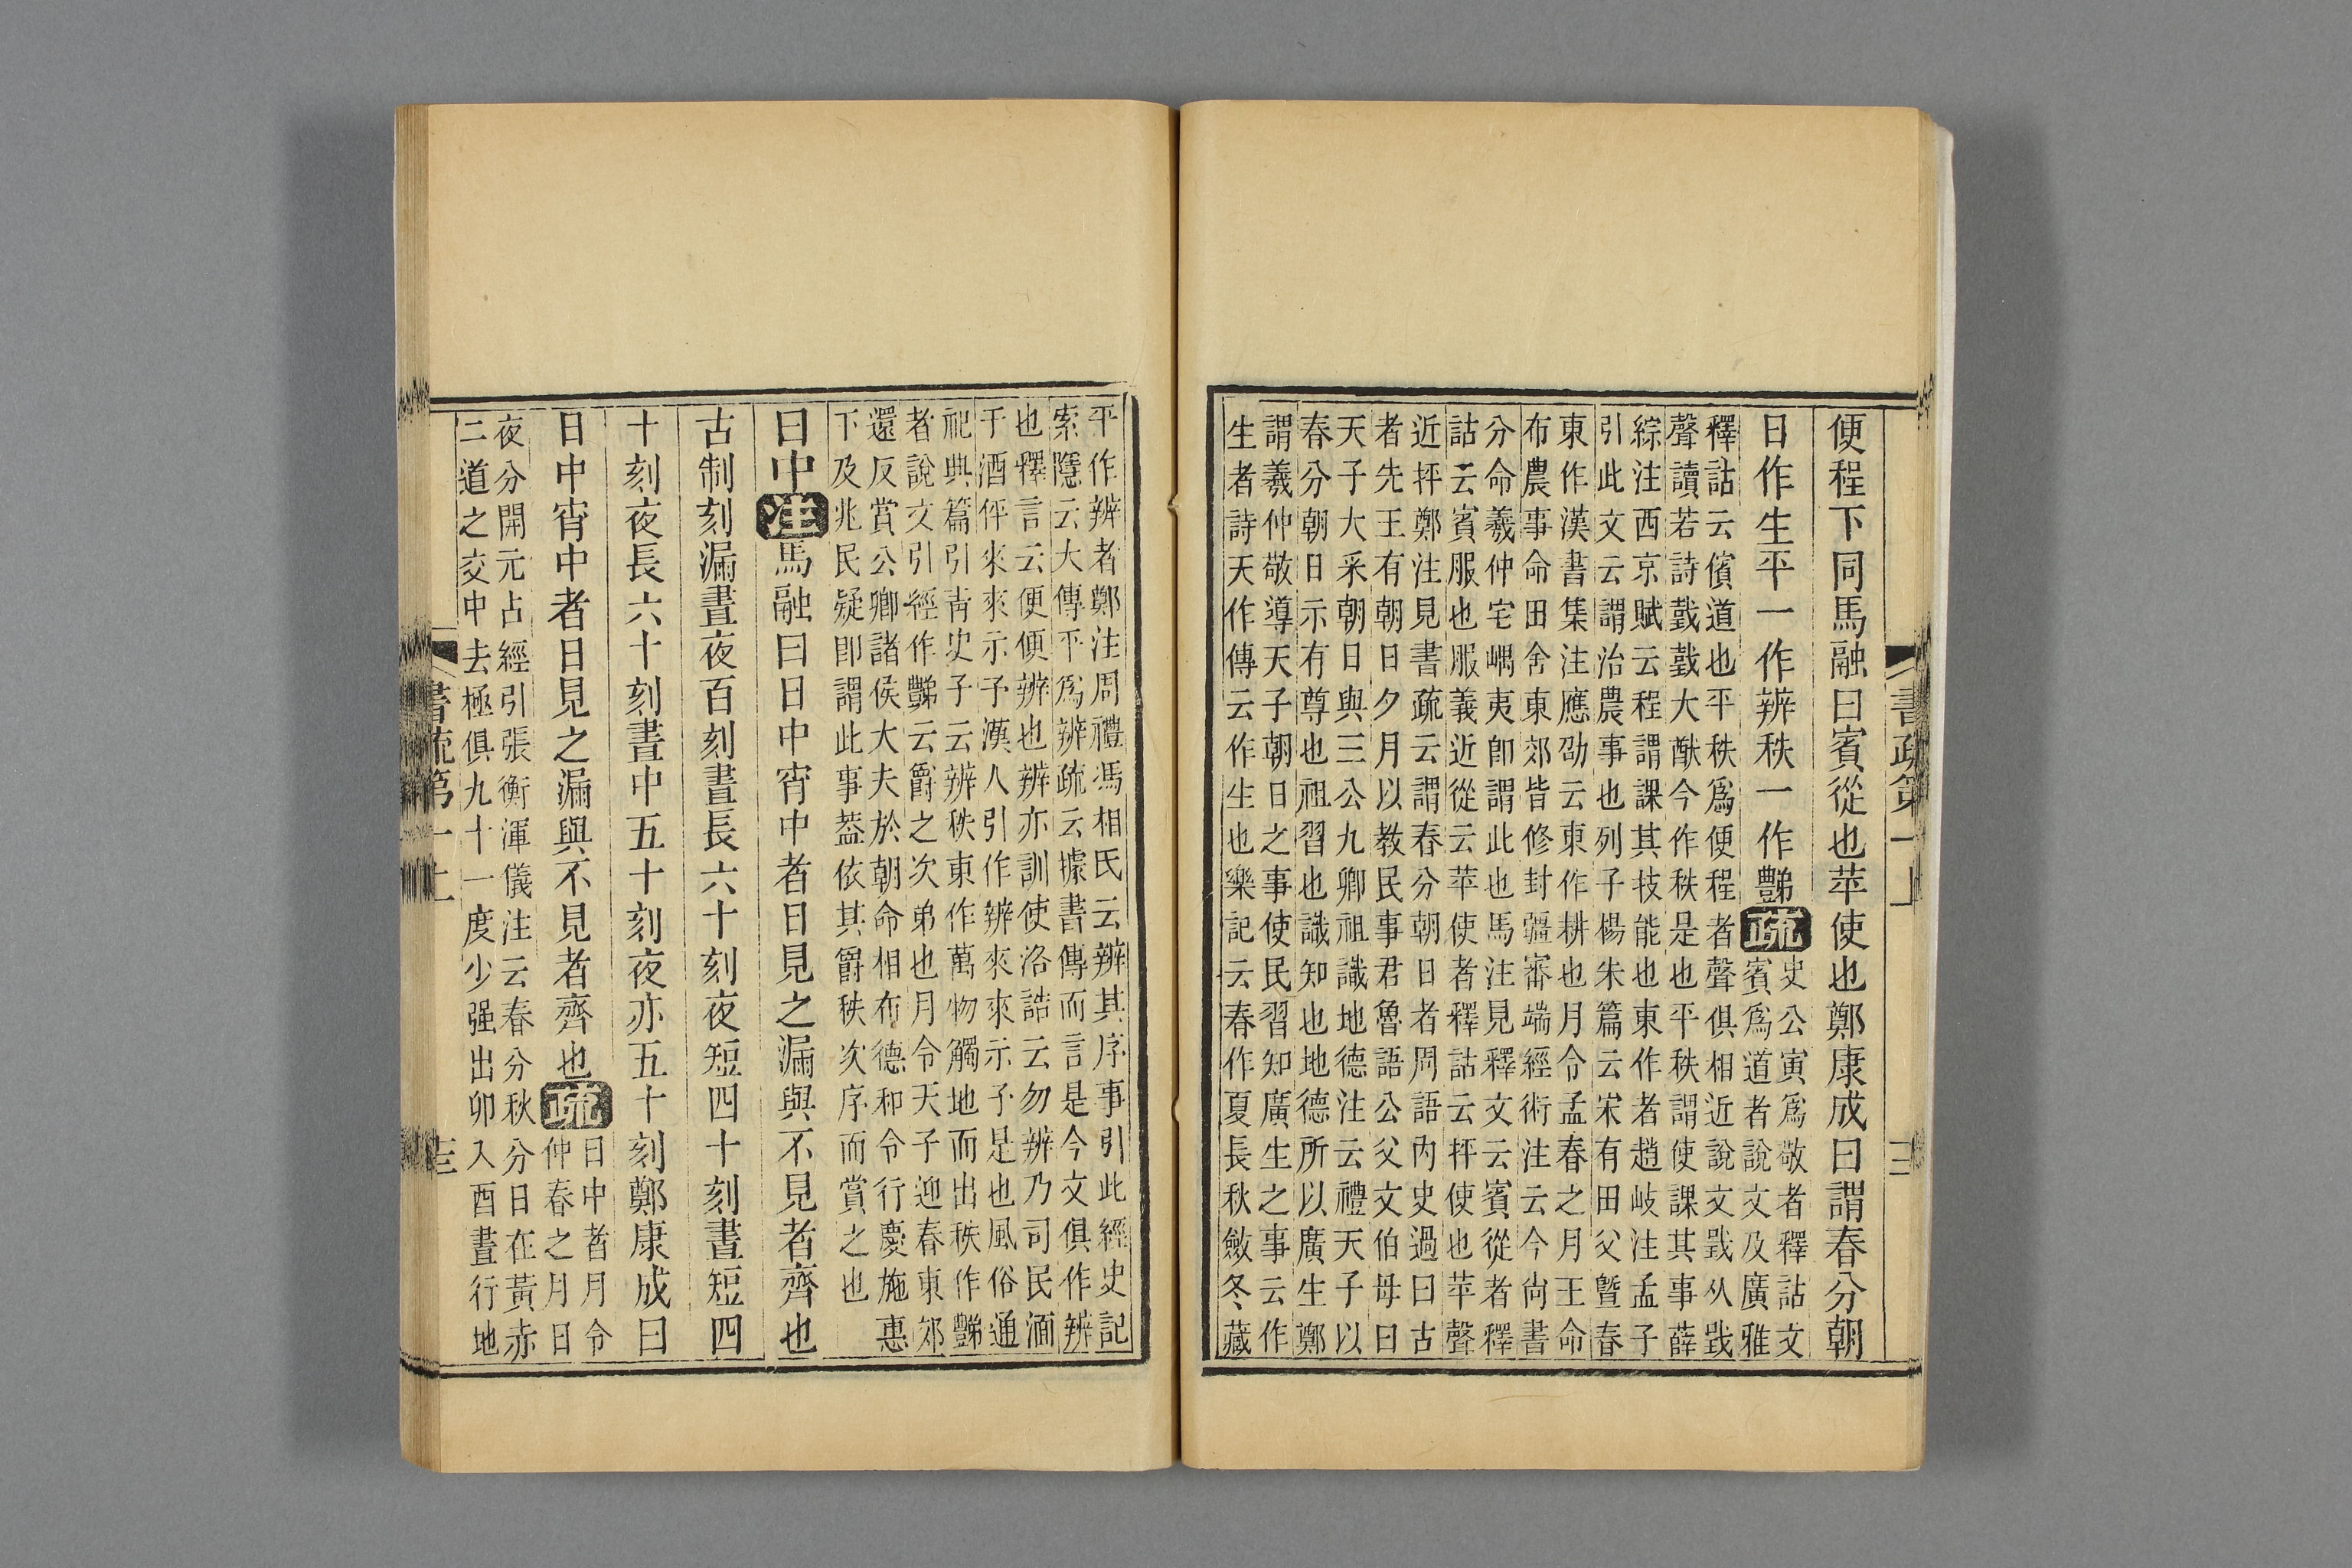 便程下同馬融曰賓從也苹使也鄭康成曰謂春分朝
日作生平一作辨秩一作豑疏
史公寅爲敬者釋詁文
賓爲道者說文及廣雅
釋詁云儐道也平秩爲便程者聲俱相近說文戥从戥
聲讀若詩戥戥大猷今作秩是也平秩謂使課其事薛
綜注西京賦云程謂課其技能也東作者趙岐注孟子
引此文云謂治農事也列子楊朱篇云宋有田父曁春
東作漢書集注應劭云東作耕也月令孟春之月王命
布農事命田舍東郊皆修封疆審端經術注云今尙書
分命羲仲宅嵎夷卽謂此也馬注見釋文云賓從者釋
詁云賓服也服義近從云苹使者釋詁云抨使也苹聲
近抨鄭注見書疏云謂春分朝日者周語內史過曰古
者先王有朝日夕月以教民事君魯語公父文伯母曰
天子大采朝日與三公九卿祖識地德注云禮天子以
春分朝日示有尊也祖習也識知也地德所以廣生鄭
謂羲仲敬導天子朝日之事使民習知廣生之事云作
生者詩天作傳云作生也樂記云春作夏長秋斂冬藏
書疏第一上
三
平作辨者鄭注周禮馮相氏云辨其序事引此經史記
索隱云大傳平爲辨疏云據書傳而言是今文俱作辨
也釋言云便便辨也辨亦訓使洛誥云勿辨乃司民湎
于酒伻來來示予漢人引作辨來來示予是也風俗通
祀典篇引靑史子云辨秩東作萬物觸地而出秩作豑
者說文引經作豑云爵之次弟也月令天子迎春東郊
還反賞公卿諸侯大夫於朝命相布德和令行慶施惠
下及兆民疑卽謂此事葢依其爵秩次序而賞之也
日中注馬融曰日中宵中者日見之漏與不見者齊也
古制刻漏晝夜百刻晝長六十刻夜短四十刻晝短四
十刻夜長六十刻晝中五十刻夜亦五十刻鄭康成曰
日中宵中者日見之漏與不見者齊也疏
日中者月令
仲春之月日
夜分開元占經引張衡渾儀注云春分秋分日在黃赤
二道之交中去極俱九十一度少强出卯入酉晝行地
書疏第一上